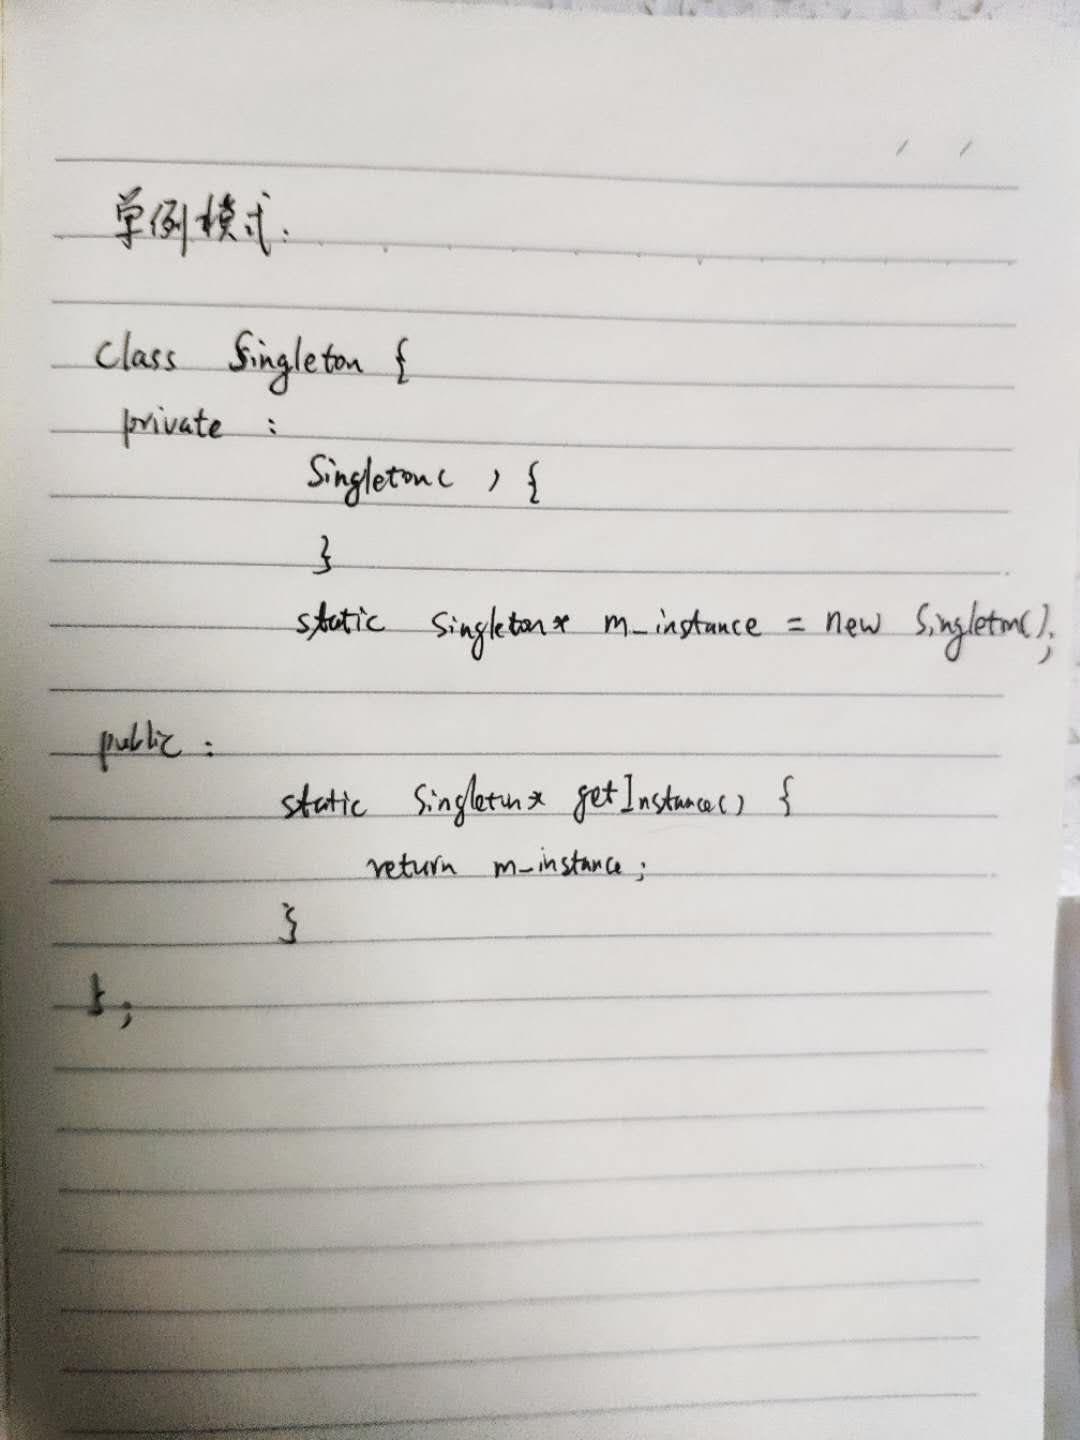 单例模式:
class Singleton {
private :
Singleton( ) {
}
static Singleton* m_instance = new Singleton();
public :
static Singleton* getInstance() {
return m_instance;
}
};